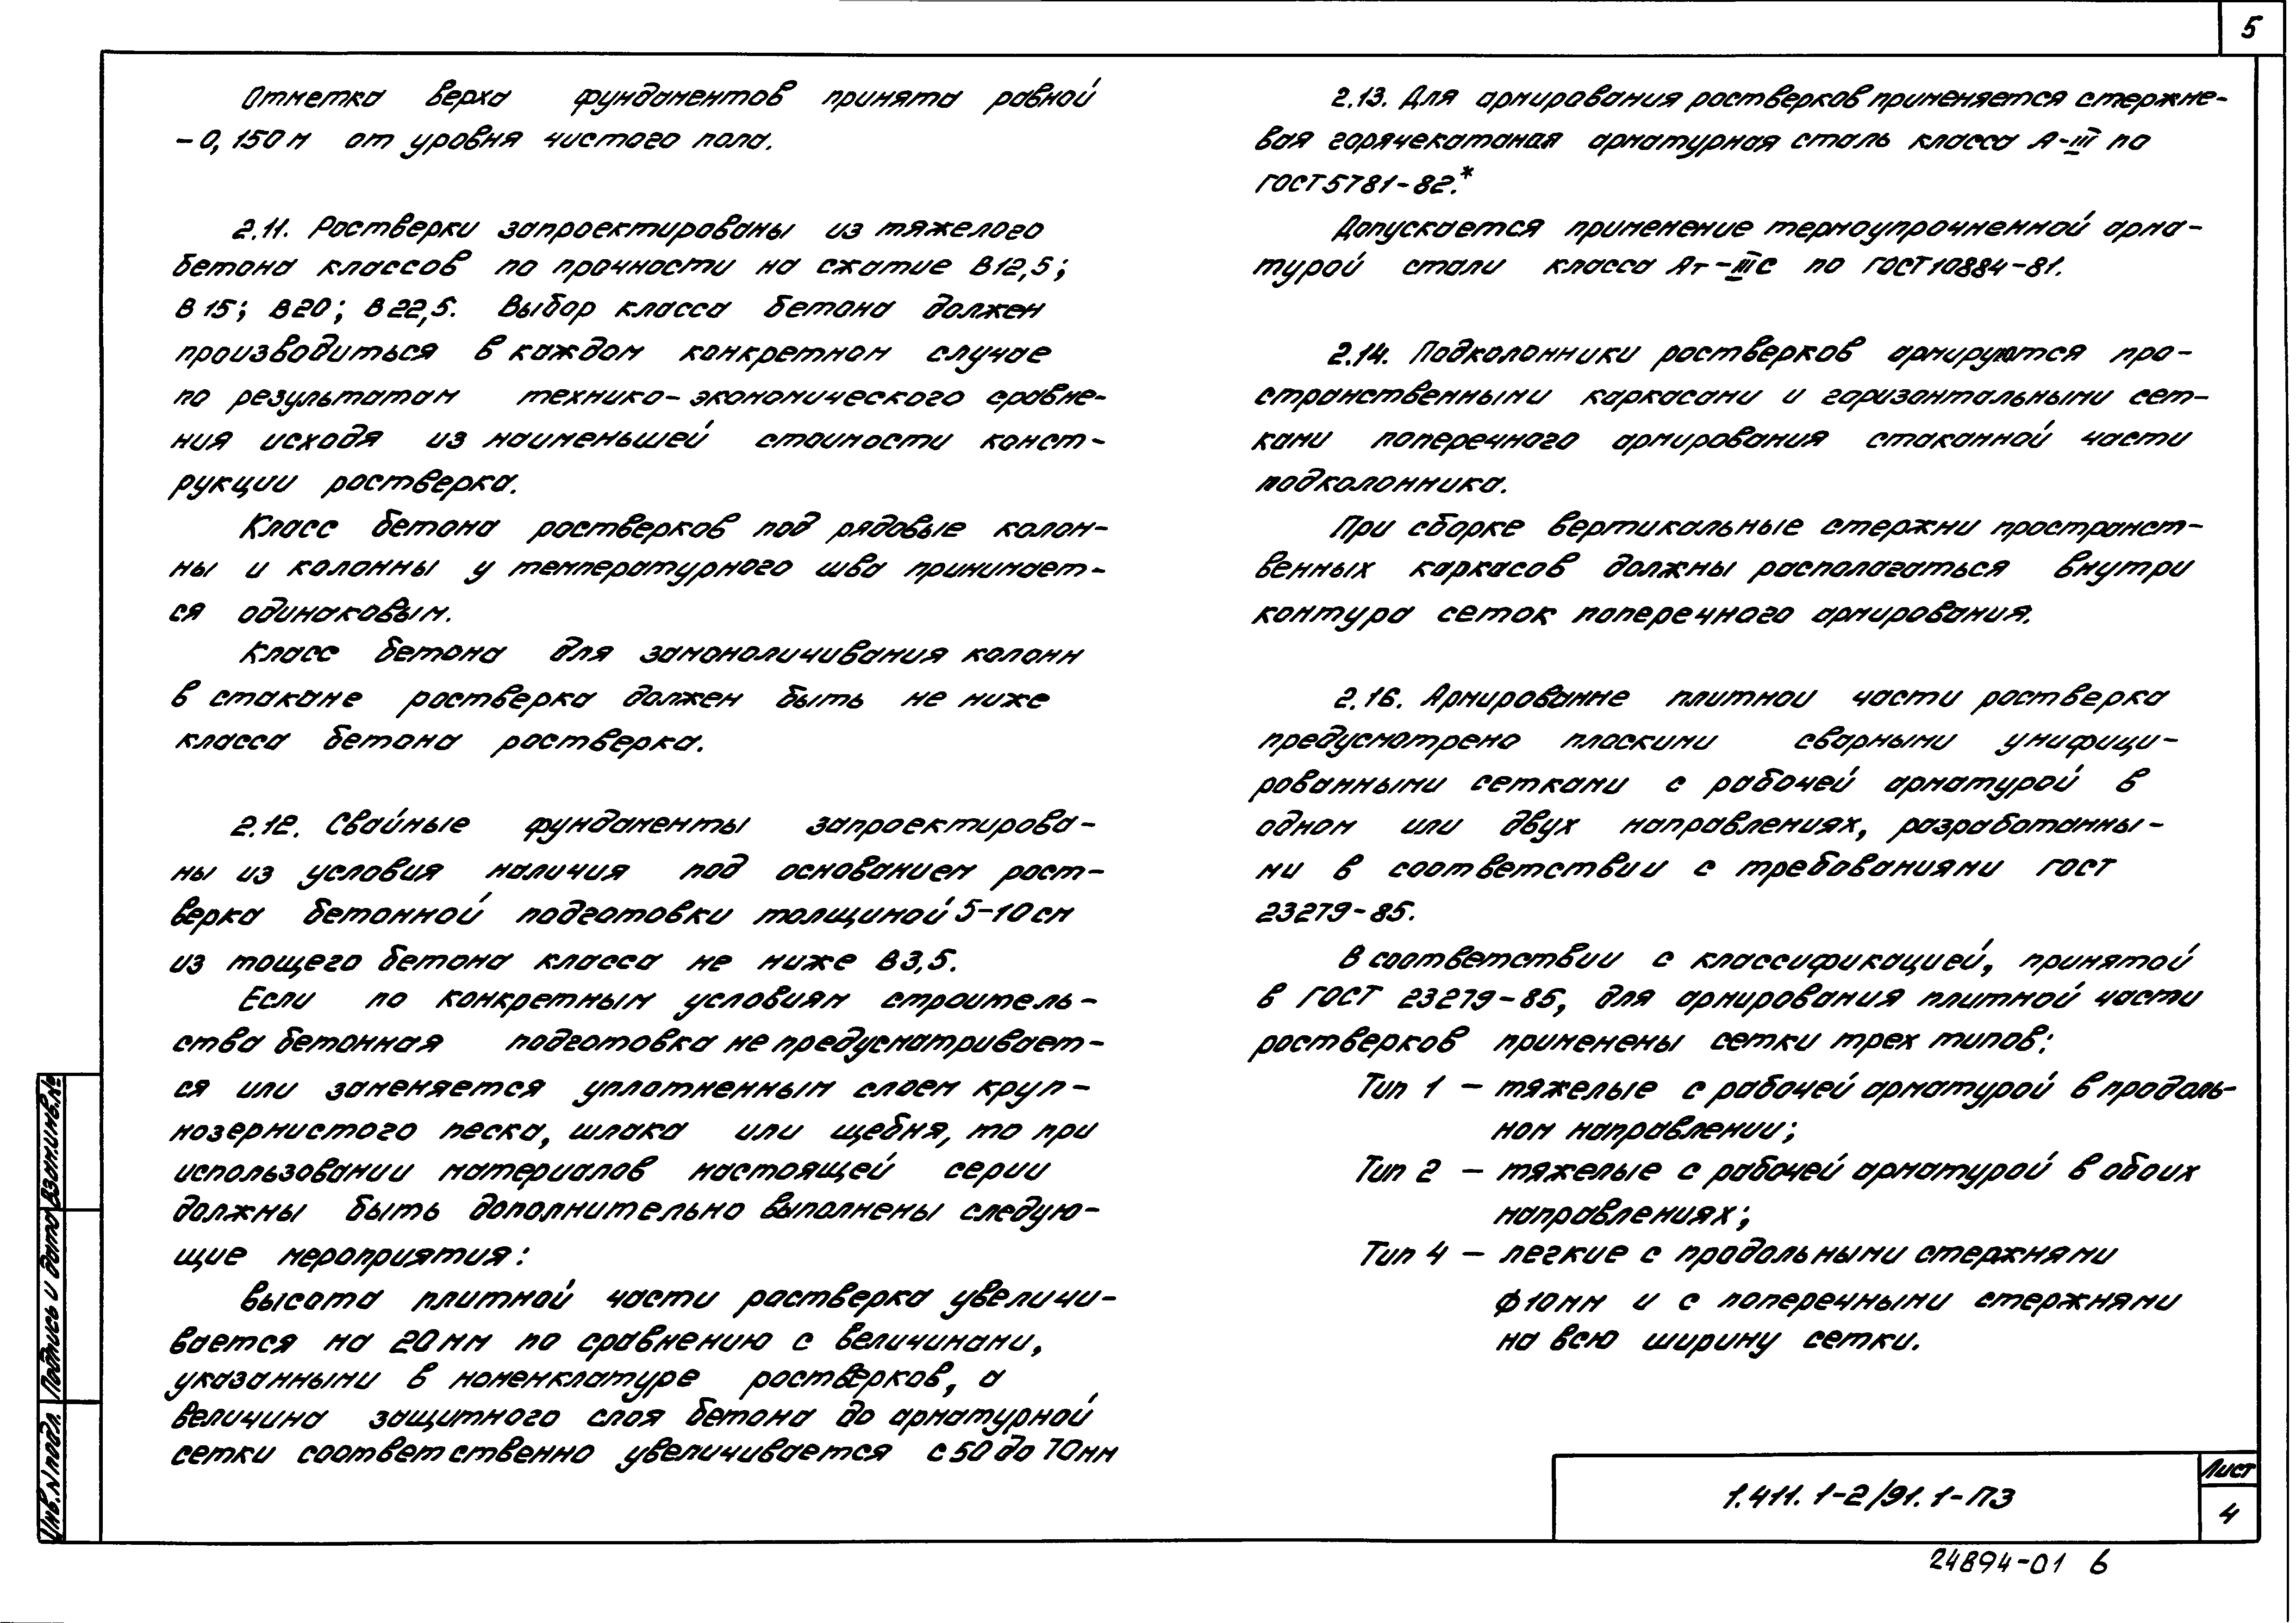 5
Отметка верха фундаментов принята равной
-0,150м от уровня чистого пола.
2.11. Ростверки запроектированы из тяжелого
бетона классов по прочности на сжатие В12,5;
В15; В20; В22,5. Выбор класса бетона должен
производиться в каждом конкретном случае
по результатам технико-экономического сравне-
ния исходя из наименьшей стоимости конст-
рукции ростверка.
Класс бетона ростверков под рядовые колон-
ны и колонны у температурного шва принимает-
ся одинаковым.
Класс бетона для замоноличивания колонн
в стакане ростверка должен быть не ниже
класса бетона ростверка.
2.12. Свайные фундаменты запроектирова-
ны из условия наличия под основанием рост-
верка бетонной подготовки толщиной 5-10см
из тощего бетона класса не ниже В3,5.
Если по конкретным условиям строитель-
ства бетонная подготовка не предусматривает-
ся или заменяется уплотненным слоем круп-
нозернистого песка, шлака или щебня, то при
использовании материалов настоящей серии
должны быть дополнительно выполнены следую-
щие мероприятия:
Высота плитной части ростверка увеличи-
вается на 20мм по сравнению с величинами,
указанными в номенклатуре ростверков, а
величина защитного слоя бетона до арматурной
сетки соответственно увеличивается с 50 до 70мм
2.13. Для армирования ростверков применяется стержне-
вая горячекатаная арматурная сталь класса А-III по
ГОСТ 5781-82.*
Допускается применение термоупрочненной арма-
турой стали класса Ат-IIIС по ГОСТ 10884-81.
2.14. Подколонники ростверков армируются про-
странственными каркасами и горизонтальными сет-
ками поперечного армирования стаканной части
подколонника.
При сборке вертикальные стержни пространст-
венных каркасов должны располагаться внутри
контура сеток поперечного армирования.
2.16. Армирование плитной части ростверка
предусмотрено плоскими сварными унифици-
рованными сетками с рабочей арматурой в
одном или двух направлениях, разработанны-
ми в соответствии с требованиями ГОСТ
23279-85.
В соответствии с классификацией, принятой
в ГОСТ 23279-85, для армирования плитной части
ростверков применены сетки трех типов:
Тип 1 - тяжелые с рабочей арматурой в продоль-
ном направлении;
Тип 2 - тяжелые с рабочей арматурой в обоих
направлениях;
Тип 4 - легкие с продольными стержнями
ф10мм и с поперечными стержнями
на всю ширину сетки.
Инв.N подл. Подпись и дата Взам.инв.№
1.411.1-2/91.1-ПЗ
Лист
4
24894-01 6